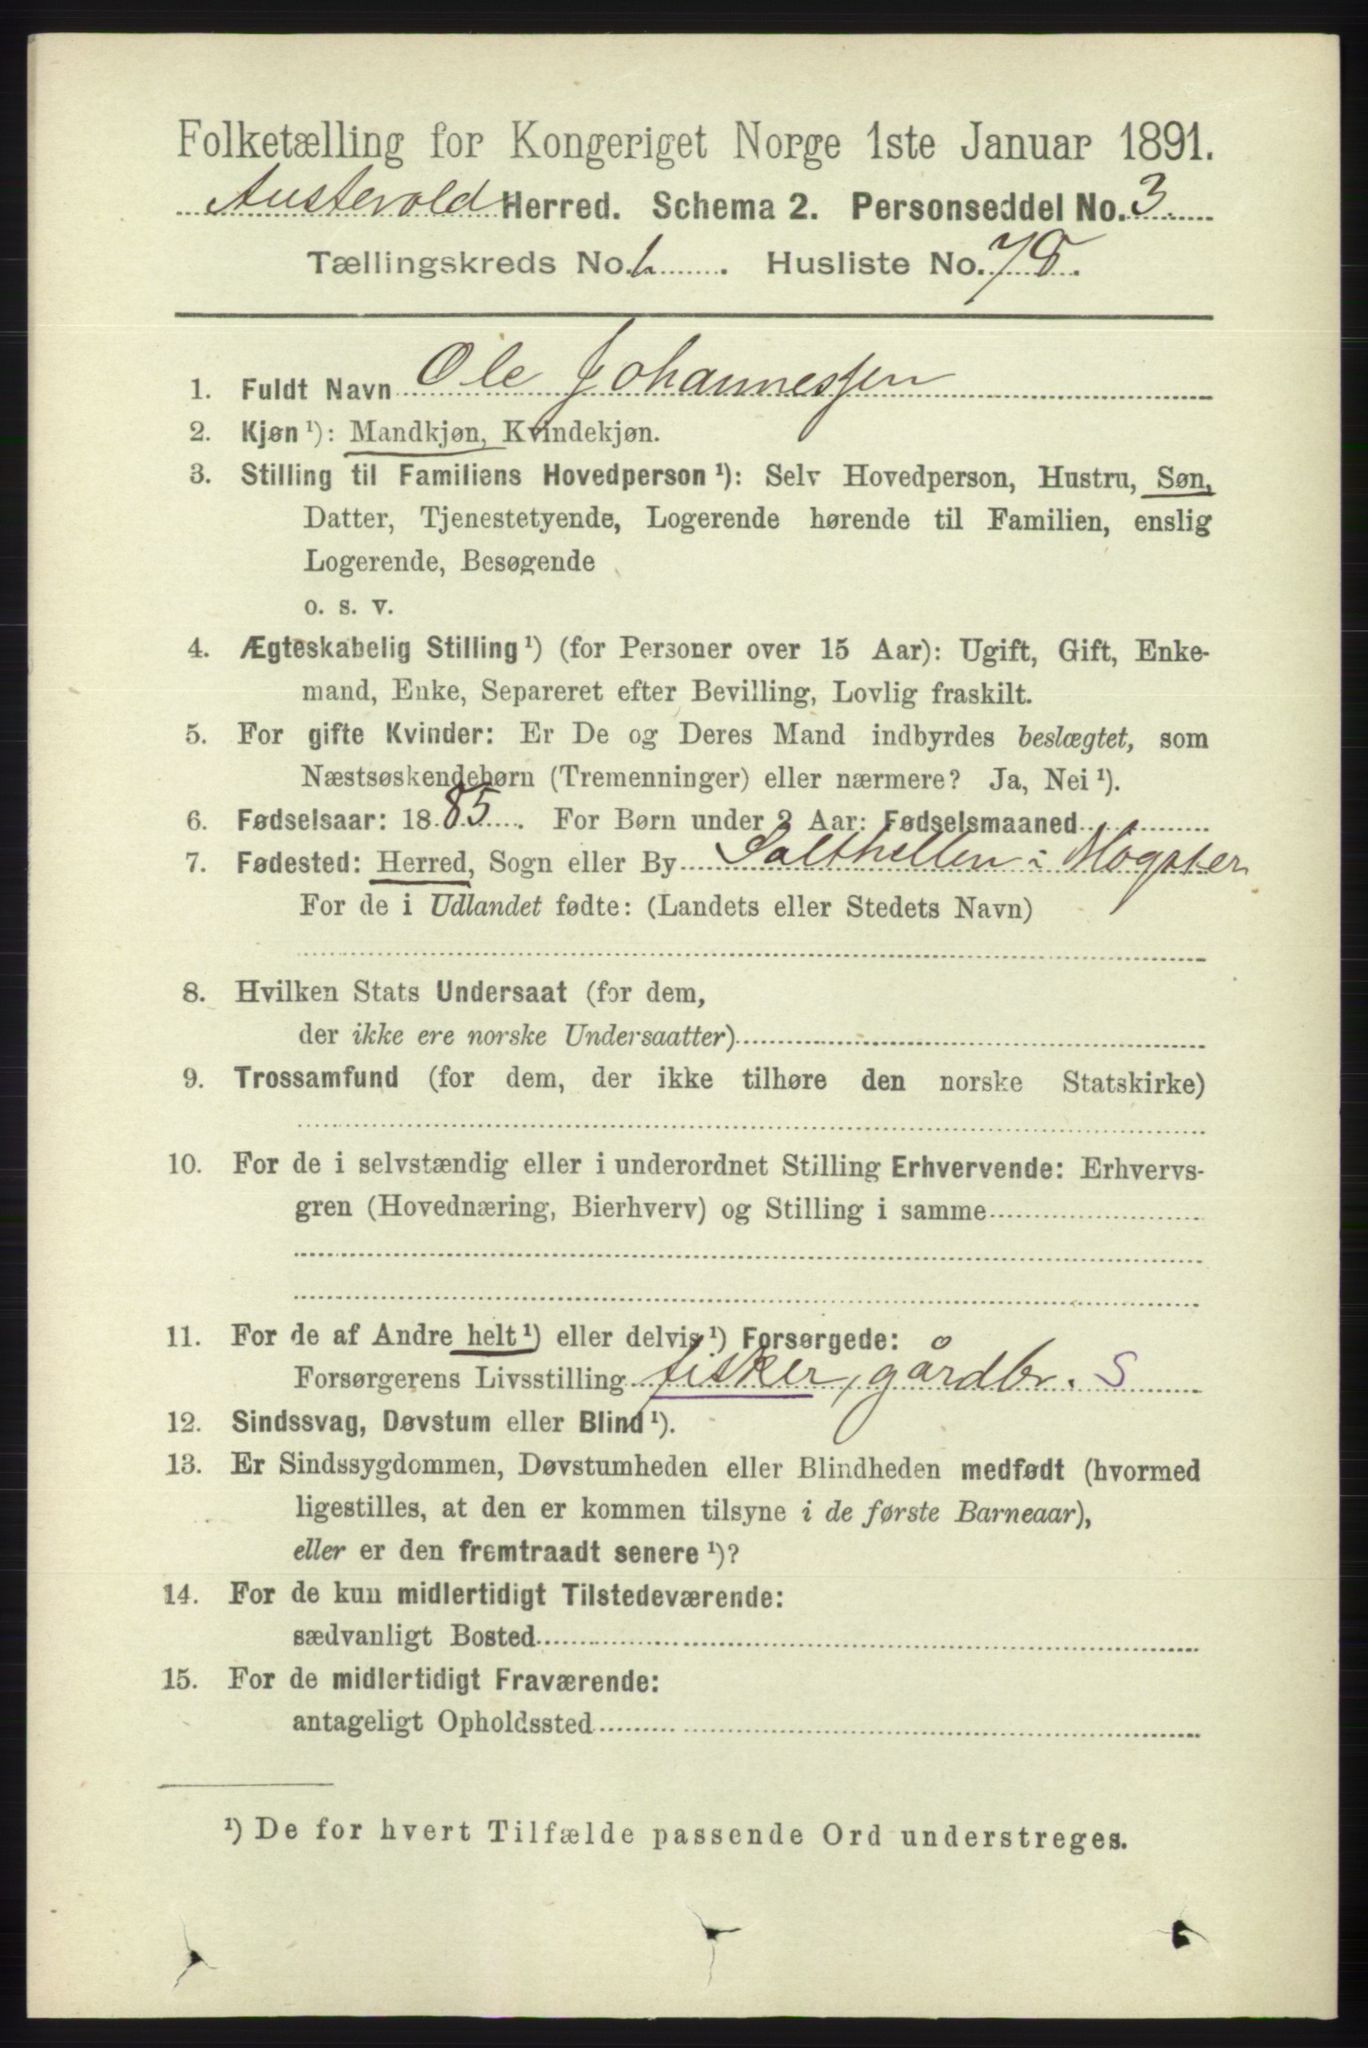 Folketælling for Kongeriget Norge 1ste Januar 1891.
Austevold Herred. Schema 2. Personseddel No. 3.
Tællingskreds No. 1. Husliste No. 78.
1. Fuldt Navn Ole Johannessen
2. Kjøn ¹): Mandkjøn, Kvindekjøn.
3. Stilling til Familiens Hovedperson ¹): Selv Hovedperson, Hustru, Søn,
Datter, Tjenestetyende, Logerende hørende til Familien, enslig
Logerende, Besøgende
o. s. v.
4. Ægteskabelig Stilling ¹) (for Personer over 15 Aar): Ugift, Gift, Enke-
mand, Enke, Separeret efter Bevilling, Lovlig fraskilt.
5. For gifte Kvinder: Er De og Deres Mand indbyrdes beslægtet, som
Næstsøskendebørn (Tremenninger) eller nærmere? Ja, Nei ¹).
6. Fødselsaar: 1885. For Børn under 2 Aar: Fødselsmaaned
7. Fødested: Herred, Sogn eller By Salthellen i Møgster
For de i Udlandet fødte: (Landets eller Stedets Navn)
8. Hvilken Stats Undersaat (for dem,
der ikke ere norske Undersaatter)
9. Trossamfund (for dem, der ikke tilhøre den norske Statskirke)
10. For de i selvstændig eller i underordnet Stilling Erhvervende: Erhvervs-
gren (Hovednæring, Bierhverv) og Stilling i samme
11. For de af Andre helt ¹) eller delvis ¹) Forsørgede:
Forsørgerens Livsstilling fisker, gårdbr. S
12. Sindssvag, Døvstum eller Blind ¹).
13. Er Sindssygdommen, Døvstumheden eller Blindheden medfødt (hvormed
ligestilles, at den er kommen tilsyne i de første Barneaar),
eller er den fremtraadt senere ¹)?
14. For de kun midlertidigt Tilstedeværende:
sædvanligt Bosted
15. For de midlertidigt Fraværende:
antageligt Opholdssted
¹) De for hvert Tilfælde passende Ord understreges.